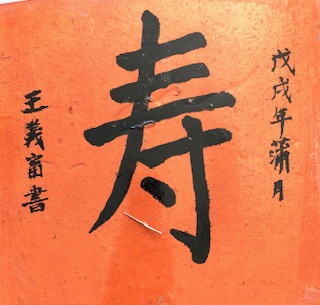 戊戌年蒲月
寿
王義富書